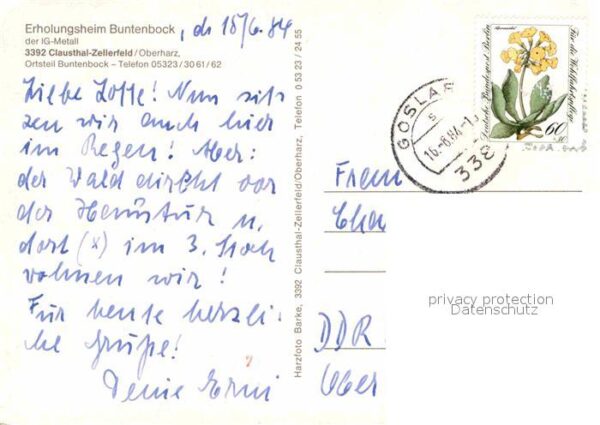 Erholungsheim Buntenbock, d. 15/6.84
der IG-Metall
3392 Clausthal-Zellerfeld/Oberharz,
Ortsteil Buntenbock – Telefon 05323/30 61/62
Liebe Lotte! Nun sit-
zen wir auch hier
im Regen! Aber:
der Wald direkt vor
der Haustür u.
dort (x) im 3. Stock
wohnen wir!
Für heute herzli-
che Grüße!
Deine Erni
Harzfoto Barke, 3392 Clausthal-Zellerfeld/Oberharz, Telefon 0 53 23 / 24 55
GOSLAR
16.-6.84-1
338
Deutsche Bundespost Berlin
Für die Wohlfahrtspflege
60
DDR
Ober
privacy protection
Datenschutz